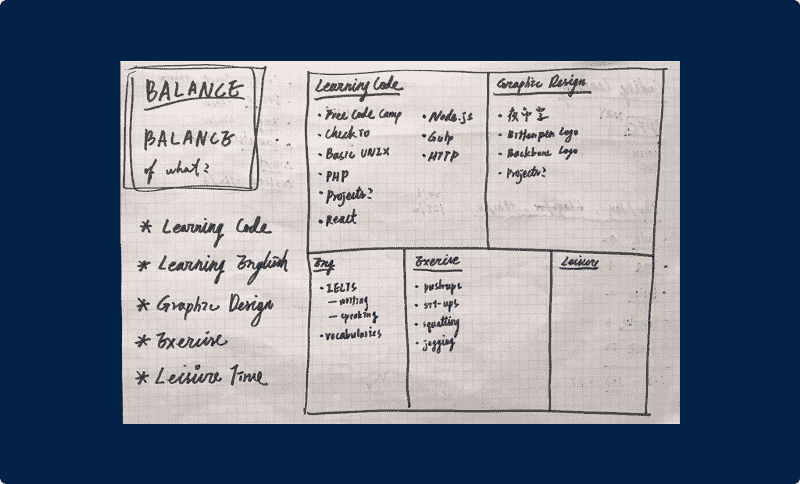 BALANCE
BALANCE
of what?
* Learning Code
* Learning English
* Graphic Design
* Exercise
* Leisure Time
Learning Code
• Free Code Camp
• Check To
• Basic UNIX
• PHP
• Projects?
• React
• Node.js
• Gulp
• HTTP
Graphic Design
• Bitten pen Logo
• Backbone Logo
• Projects?
Eng
• IELTS
– writing
– speaking
• vocabularies
Exercise
• pushups
• sit-ups
• squatting
• jogging
Leisure